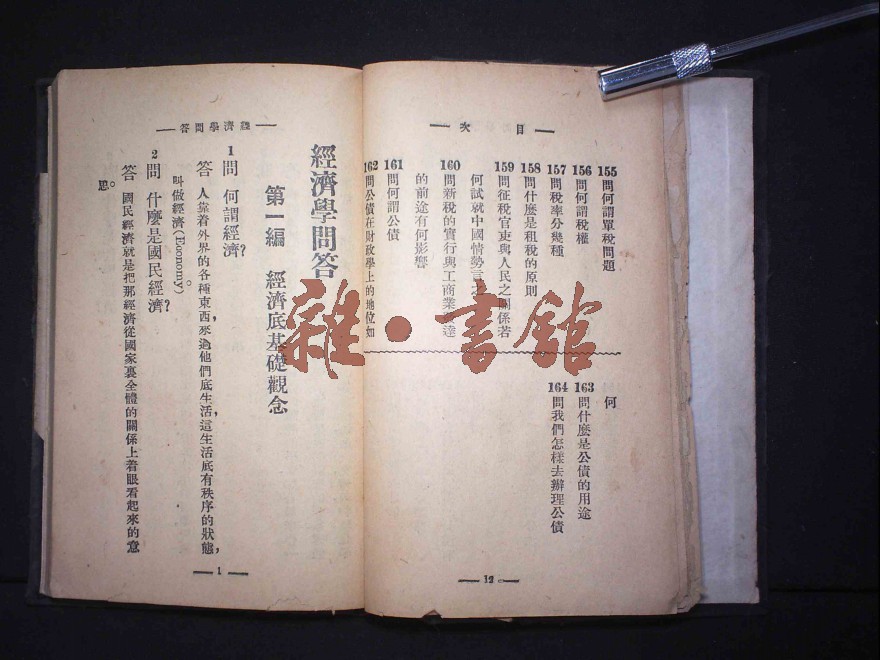 目次
155 問何謂單稅問題
156 問何謂稅權
157 問稅率分幾種
158 問什麼是租稅的原則
159 問征稅官吏與人民之關係若
何試就中國情勢言之
160 問新稅的實行與工商業發達
的前途有何影響
161 問何謂公債
162 問公債在財政學上的地位如
何
163 問什麼是公債的用途
164 問我們怎樣去辦理公債
12
經濟學問答
經濟學問答
第一編 經濟底基礎觀念
1 問 何謂經濟?
答 人靠着外界的各種東西,來過他們底生活,這生活底有秩序的狀態,
叫做經濟(Economy)。
2 問 什麼是國民經濟?
答 國民經濟就是把那經濟從國家裏全體的關係上着眼看起來的意
思。
1
雜·書館